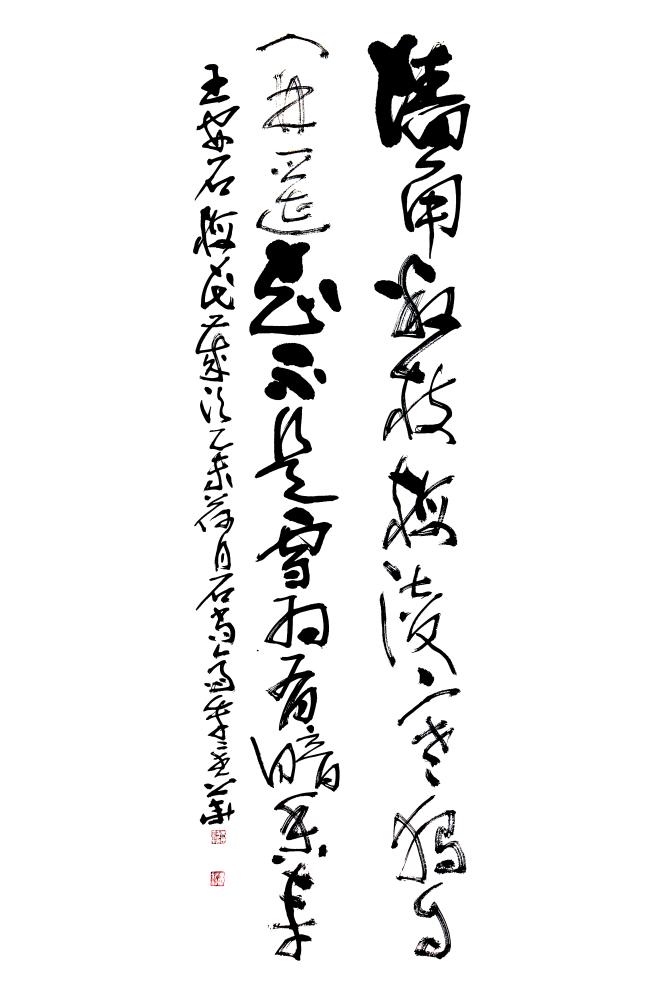 墙角数枝梅凌寒独自
开遥知不是雪为有暗香来
王安石梅花歲次乙未荷月石